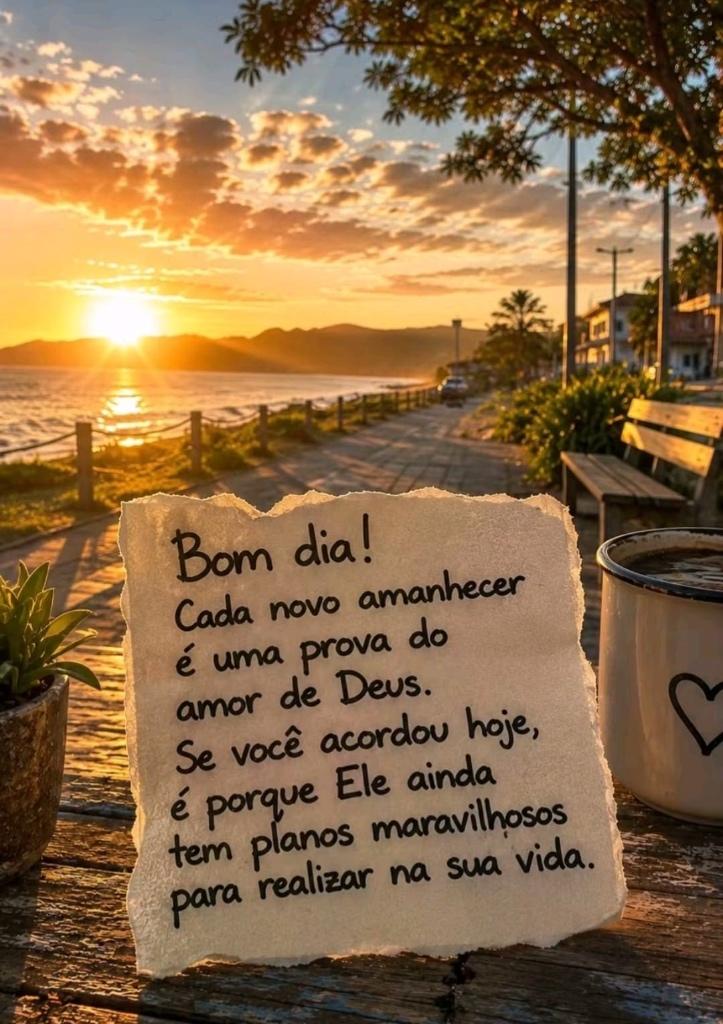 Bom dia!
Cada novo amanhecer
é uma prova do
amor de Deus.
Se você acordou hoje,
é porque Ele ainda
tem planos maravilhosos
para realizar na sua vida.